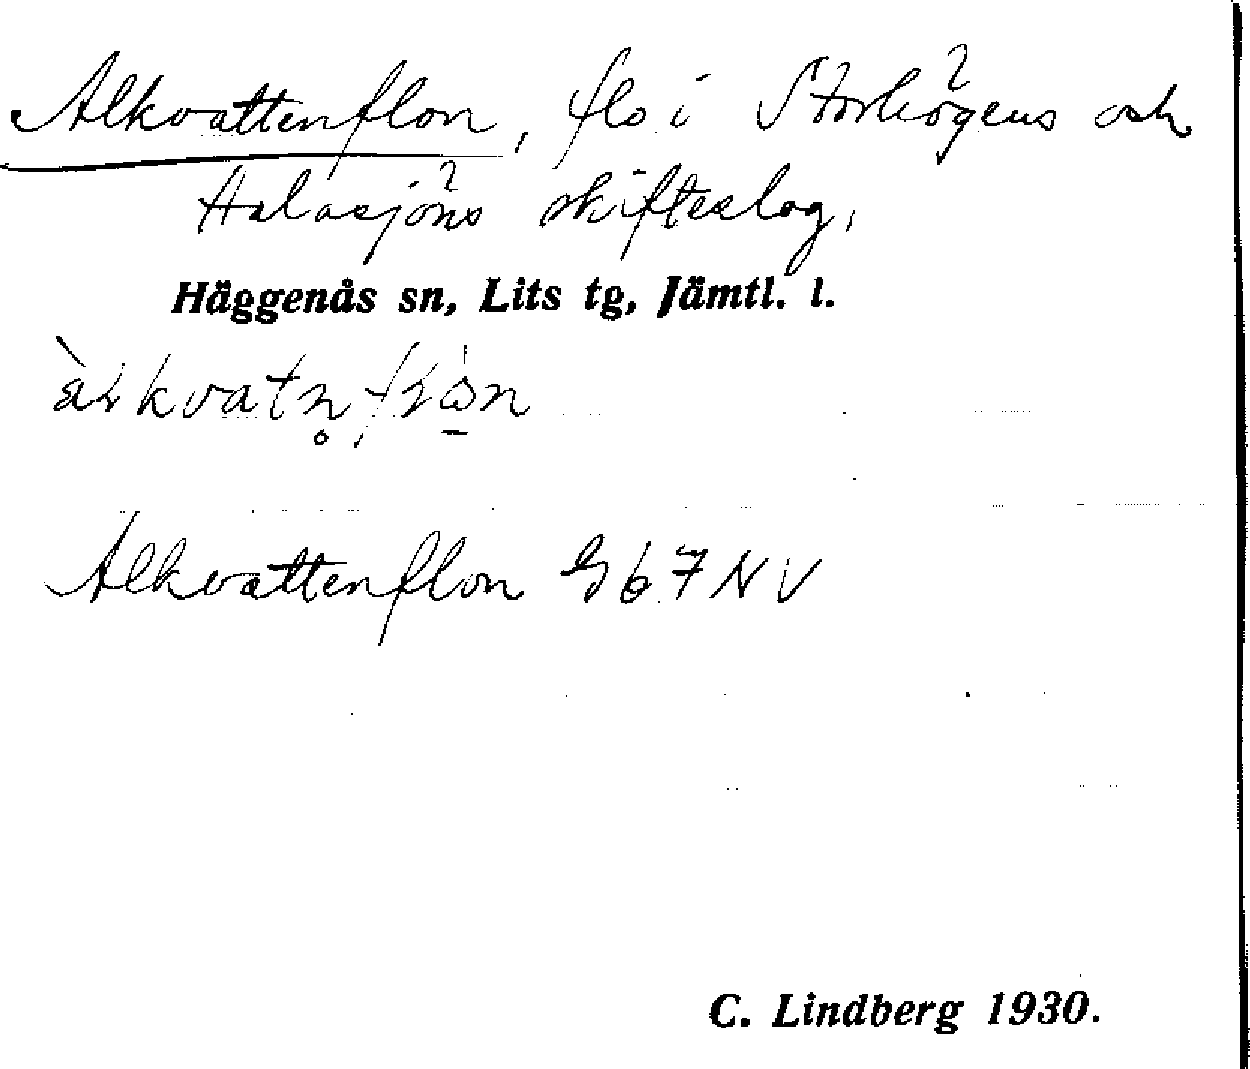 Alkvattenflon, flo i Storhögens och
Halasjöns skifteslag,
Häggenås sn, Lits tg, Jämtl. l.
Alkvattenflon G67NV
C. Lindberg 1930.